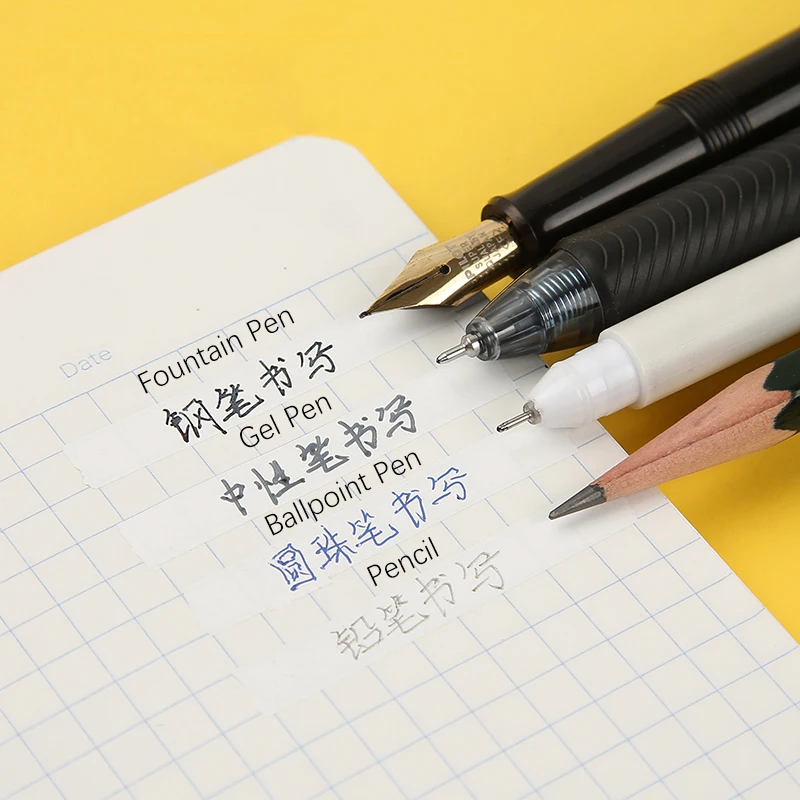 Date
Fountain Pen
钢笔书写
Gel Pen
中性笔书写
Ballpoint Pen
圆珠笔书写
Pencil
铅笔书写